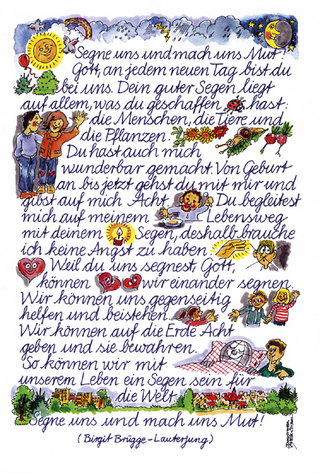 Segne uns und mach uns Mut!
Gott, an jedem neuen Tag bist du
bei uns. Dein guter Segen liegt
auf allem, was du geschaffen hast:
die Menschen, die Tiere und
die Pflanzen.
Du hast auch mich
wunderbar gemacht. Von Geburt
an bis jetzt gehst du mit mir und
gibst auf mich Acht. Du begleitest
mich auf meinem Lebensweg
mit deinem Segen, deshalb brauche
ich keine Angst zu haben.
Weil du uns segnest, Gott,
können wir einander segnen.
Wir können uns gegenseitig
helfen und beistehen.
Wir können auf die Erde Acht
geben und sie bewahren.
So können wir mit
unserem Leben ein Segen sein für
die Welt.
Segne uns und mach uns Mut!
(Birgit Brügge-Lauterjung)